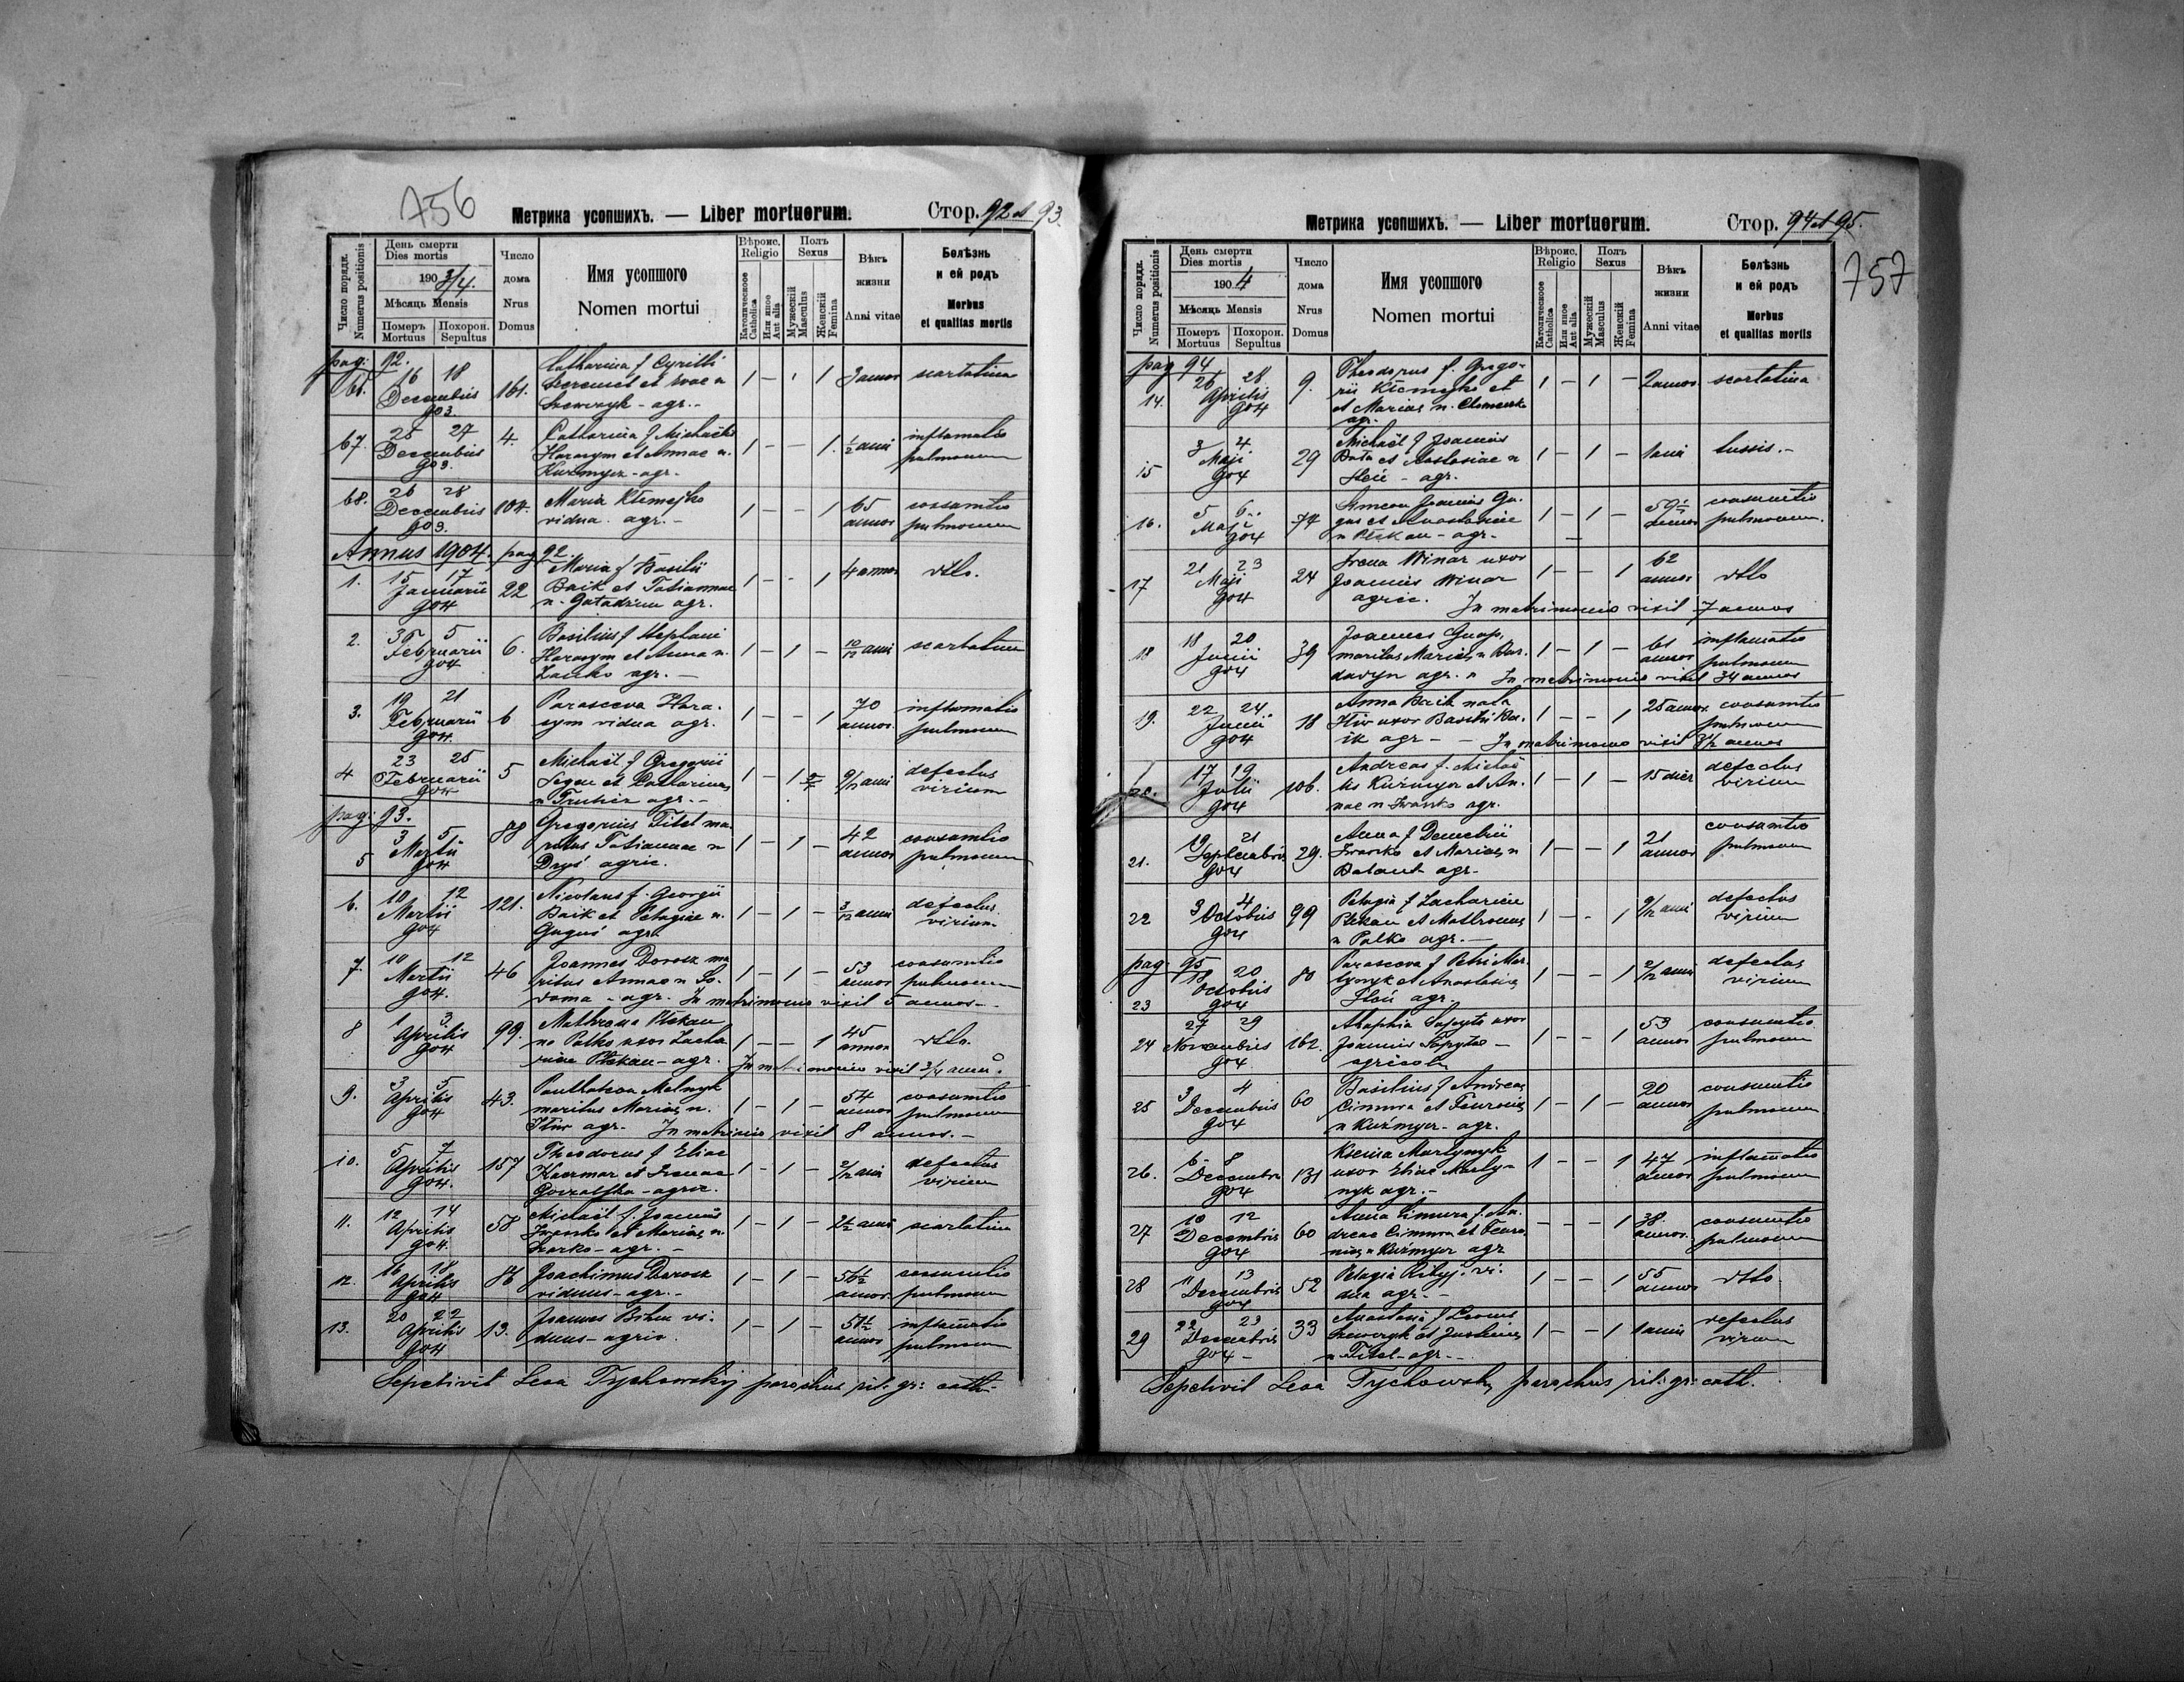 756
Метрика усопшихъ. — Liber mortuorum. Стор. 92 et 93.
Число порядк. Numerus positionis
День смерти Dies mortis
190 3/4.
Мѣсяць Mensis
Померъ Mortuus
Похорон. Sepultus
Число дома Nrus Domus
Имя усопшого
Nomen mortui
Вѣроис. Religio
Католическое Catholica
Или иное Aut alia
Полъ Sexus
Мужескій Masculus
Женскій Femina
Вѣкъ жизни Anni vitae
Болѣзнь и ей родъ
Morbus et qualitas mortis
pag: 92.
66. 16 18 Decembris 903 161. Catharina f Cyrilli
et n
Szewczyk - agr. - 1 - 1 3 annor scarlatina
67. 25 27 Decembris 903. 4. Catharina f Michaëlis
Harasym et Annae n.
Kuzmycz - agr. - 1 - - 1. ½ anni inflamatio pulmonum
68. 26 28 Decembris 903. 104. Maria Klemejko
vidua. agr. - 1 - - 1 65 annor consumtio pulmonum
Annus 1904. pag 92.
1. 15 17 Januarii 904 22 Maria f Basilii
Baik et Tatiannae
n. agr. 1 - - 1 4 annor dtto.
2. 3 5 Februarii 904 6. Basilius f Stephani
Harasym et Anna n.
agr. - 1 - 1 - 10/12 anni scarlatina
3. 19 21 Februarii 904. 6 Parasceva Hara-
sym vidua agr. 1 - - 1 70 annor. inflamatio pulmonum
4 23 25 Februarii 904 5 Michaël f Gregorii
et Catharinae
n agr. - 1 - 1 9/12 anni defectus virium
pag: 93.
5 3 5 Martii 904 88 Gregorius Titel ma-
ritus Tatiannae n
Dryś agric. 1 - 1 - 42 annor consumtio pulmonum
6. 10 12 Martii 904 121. Nicolaus f. Georgii
Baik et Pelagiae n.
Guguś agr. 1 - 1 - 3/12 anni defectus virium
7. 10 12 Martii 904. 46 Joannes Dorosz ma
ritus Annae n So-
doma - agr. In matrimonio vixit 5 annos - 1 - 1 - 53 annor consumtio pulmonum
8 1 3 Aprilis 904 99. Mathrona Plekan
na Palko uxor Zacha
riae Plekan - agr. In matrimonio vixit 3/4 anni. 1 - - 1 45 annor dtto.
9. 3 5 Aprilis 904 43. Melnyk
maritus Mariae n.
Iliw agr. - In matrimonio vixit 8 annos. - 1 - 1 - 54 annor consumtio pulmonum
10. 5 7 Aprilis 904. 157 Theodorus f Eliae
Kaczmar et Irenae
- agric. 1 - 1 - 2/12 anni defectus virium
11. 12 14 Aprilis 904. 58 Michaël f. Joannis
Iwasko et Mariae n.
- agr. - 1 - 1 - 2½ anni scarlatina
12. 16 18 Aprilis 904 86 Joachimus Dorosz
viduus - agr. - 1 - 1 - 56½ annor. consumtio pulmonum
13. 20 22 Aprilis 904 13. Joannes vi-
duus - agric. 1 - 1 - 51½ annor inflamatio pulmonum
Sepelivit Leon Tychowskij parochus rit. gr: cath.
757
Метрика усопшихъ. — Liber mortuorum. Стор. 94 et 95.
Число порядк. Numerus positionis
День смерти Dies mortis
190 4
Мѣсяць Mensis
Померъ Mortuus
Похорон. Sepultus
Число дома Nrus Domus
Имя усопшого
Nomen mortui
Вѣроис. Religio
Католическое Catholica
Или иное Aut alia
Полъ Sexus
Мужескій Masculus
Женскій Femina
Вѣкъ жизни Anni vitae
Болѣзнь и ей родъ
Morbus et qualitas mortis
pag 94
14. 26 28 Aprilis 904 9. Theodorus f. Grego-
rii Klemejko et
et Mariae n.
agr. 1 - 1 - 2 annor scarlatina
15 3 4 Maji 904 29 Michaël f Joannis
et Anastasiae n
- agr. 1 - 1 - 1 anni tussis. -
16. 5 6 Maji 904 77 Simeon Joannis Gu-
guś et Anastasiae
n Plekan - agr. - 1 - 1 - 59½ annor consumtio pulmonum.
17 21 23 Maji 904 24 Irena Winar uxor
Joannis Winar
agric. In matrimonio vixit 7 annos 1 - - 1 62 annor dtto
18 18 20 Junii 904 39 Joannes
maritus Mariae n Bar-
agr. In matrimonio vixit 34 annos 1 - 1 - 61 annor inflamatio pulmonum
19. 22 24 Junii 904 18 Anna Baik nata
Iliw uxor Basilii Ba-
ik agr - - In matrimonio vixit 3½ annos 1 - - 1 25 annor. consumtio pulmonum
20. 17 19 Julii 904 106. Andreas f. Michaë
lis Kuźmycz et An-
nae n Iwasko agr. 1 - 1 - 15 dier defectus virium
21. 19 21 Septembris 904 29. Anna f Demetrii
Iwasko et Mariae n
agr. 1 - - 1 21 annor consumtio pulmonum
22 3 4 Octobris 904 99 Pelagia f Zachariae
Plekan et Mathronae
n Palko agr. - 1 - - 1 9/12 anni defectus virium
pag: 95
23 18 20 Octobris 904 80 Parasceva f Petri Mar-
tynyk et Anastasiae
agr. 1 - - 1 2/12 anni defectus virium
24 27 29 Novembris 904 162. Ahaphia Sapyta uxor
Joannis Sapyta -
agricola 1 - - 1 53 annor consumtio pulmonum
25 3 4 Decembris 904 60 Basilius f Andreae
Cimura et Feuroniae
n Kuźmycz - agr. 1 - 1 - 20 annor consumtio pulmonum
26. 6 8 Decembris 904 131 Ksenia Martynyk
uxor Eliae Marty-
nyk agr. - 1 - - 1 47 annor inflamatio pulmonum
27 10 12 Decembris 904 60 Anna Cimura f. An-
dreae Cimura et Feuro
niae n Kuźmycz agr - - - 1 38. annor. consumtio pulmonum
28 11 13 Decembris 904 52 Pelagia vi-
dua agr. - 1 - - 1 55 annor dtto
29 22 23 Decembris 904 - 33 Anastasia f Leonis
Szewczyk et Justinae
n Titel - agr. - 1 - - 1 1 anni defectus virium
Sepelivit Leon Tychowskij parochus rit: gr: cath.